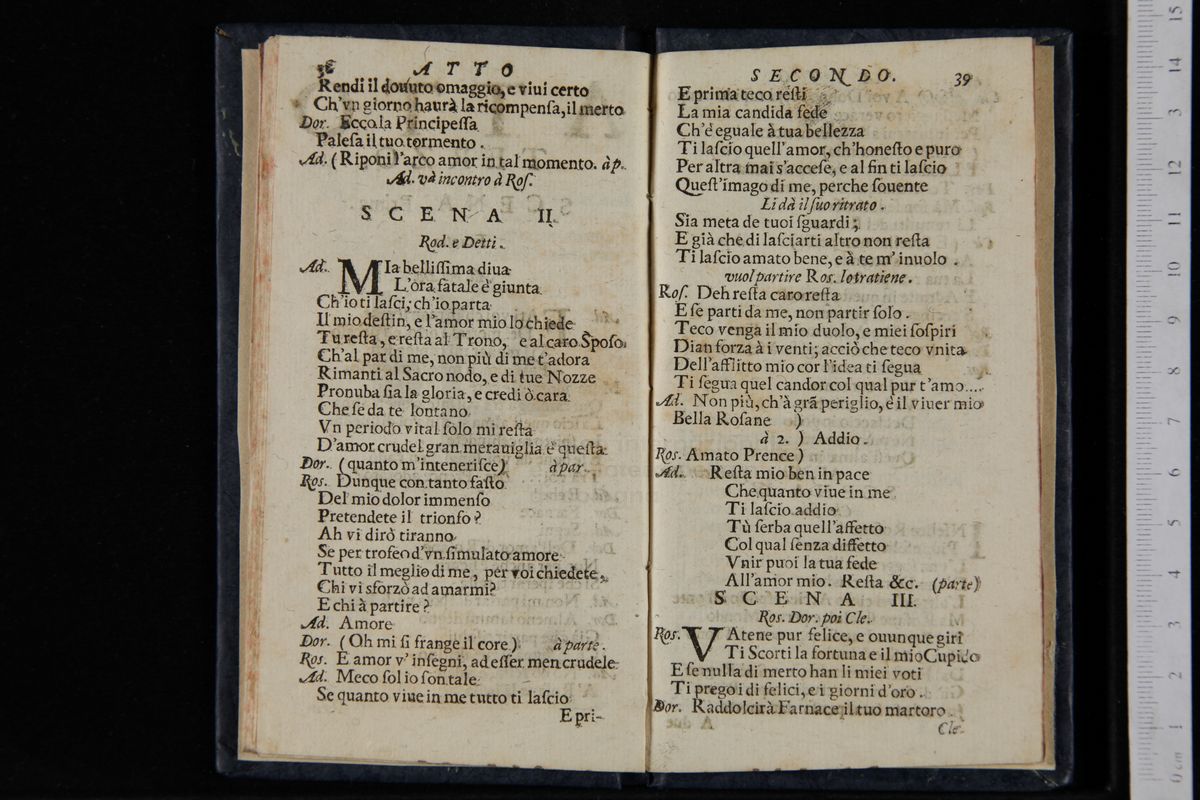 36 ATTO
Rendi il douuto omaggio, e viui certo
Ch'vn giorno haurà la ricompenſa, il merto
Dor. Ecco la Principeſſa
Paleſa il tuo tormento.
Ad. (Riponi l'arco amor in tal momento. à p.
Ad. và incontro à Roſ.
SCENA II.
Rod. e Detti.
Ad. MIa belliſſima diua
L'ora fatale è giunta
Ch'io ti laſci, ch'io parta
Il mio deſtin, e l'amor mio lo chiede
Tu reſta, e reſta al Trono, e al caro Spoſo,
Ch'al par di me, non più di me t'adora
Rimanti al Sacro nodo, e di tue Nozze
Pronuba ſia la gloria, e credi ò cara
Che ſe da te lontano
Vn periodo vital ſolo mi reſta
D'amor crudel gran merauiglia è queſta
Dor. (quanto m'inteneriſce) à par.
Ros. Dunque con tanto faſto
Del mio dolor immenſo
Pretendete il trionfo?
Ah vi dirò tiranno
Se per trofeo d'vn ſimulato amore
Tutto il meglio di me, per voi chiedete,
Chi vi sforzò ad amarmi?
E chi à partire?
Ad. Amore
Dor. (Oh mi ſi frange il core) à parte.
Ros. E amor v'inſegni, ad eſſer men crudele
Ad. Meco ſol io ſon tale
Se quanto viue in me tutto ti laſcio
E pri-
SECONDO. 39
E prima teco reſti
La mia candida fede
Ch'è eguale à tua bellezza
Ti laſcio quell'amor, ch'honeſto e puro
Per altra mai s'acceſe, e al fin ti laſcio
Queſt'imago di me, perche ſouente
Li dà il ſuo ritrato.
Sia meta de tuoi ſguardi;
E già che di laſciarti altro non reſta
Ti laſcio amato bene, e à te m'inuolo.
vuol partire Ros. lo tratiene.
Roſ. Deh reſta caro reſta
E ſe parti da me, non partir ſolo.
Teco venga il mio duolo, e miei ſoſpiri
Dian forza à i venti; acciò che teco vnita
Dell'afflitto mio cor l'idea ti ſegua
Ti ſegua quel candor col qual pur t'amo....
Ad. Non più, ch'à grã periglio, è il viuer mio
Bella Roſane )
à 2. ) Addio.
Ros. Amato Prence )
Ad. Reſta mio ben in pace
Che quanto viue in me
Ti laſcio addio
Tù ſerba quell'affetto
Col qual ſenza diffetto
Vnir puoi la tua fede
All'amor mio. Reſta &c. (parte)
SCENA III.
Ros. Dor. poi Cle.
Ros. VAtene pur felice, e ouunque giri
Ti Scorti la fortuna e il mio Cupido
E ſe nulla di merto han li miei voti
Ti prego i di felici, e i giorni d'oro.
Dor. Raddolcirà Farnace il tuo martoro.
Cle-